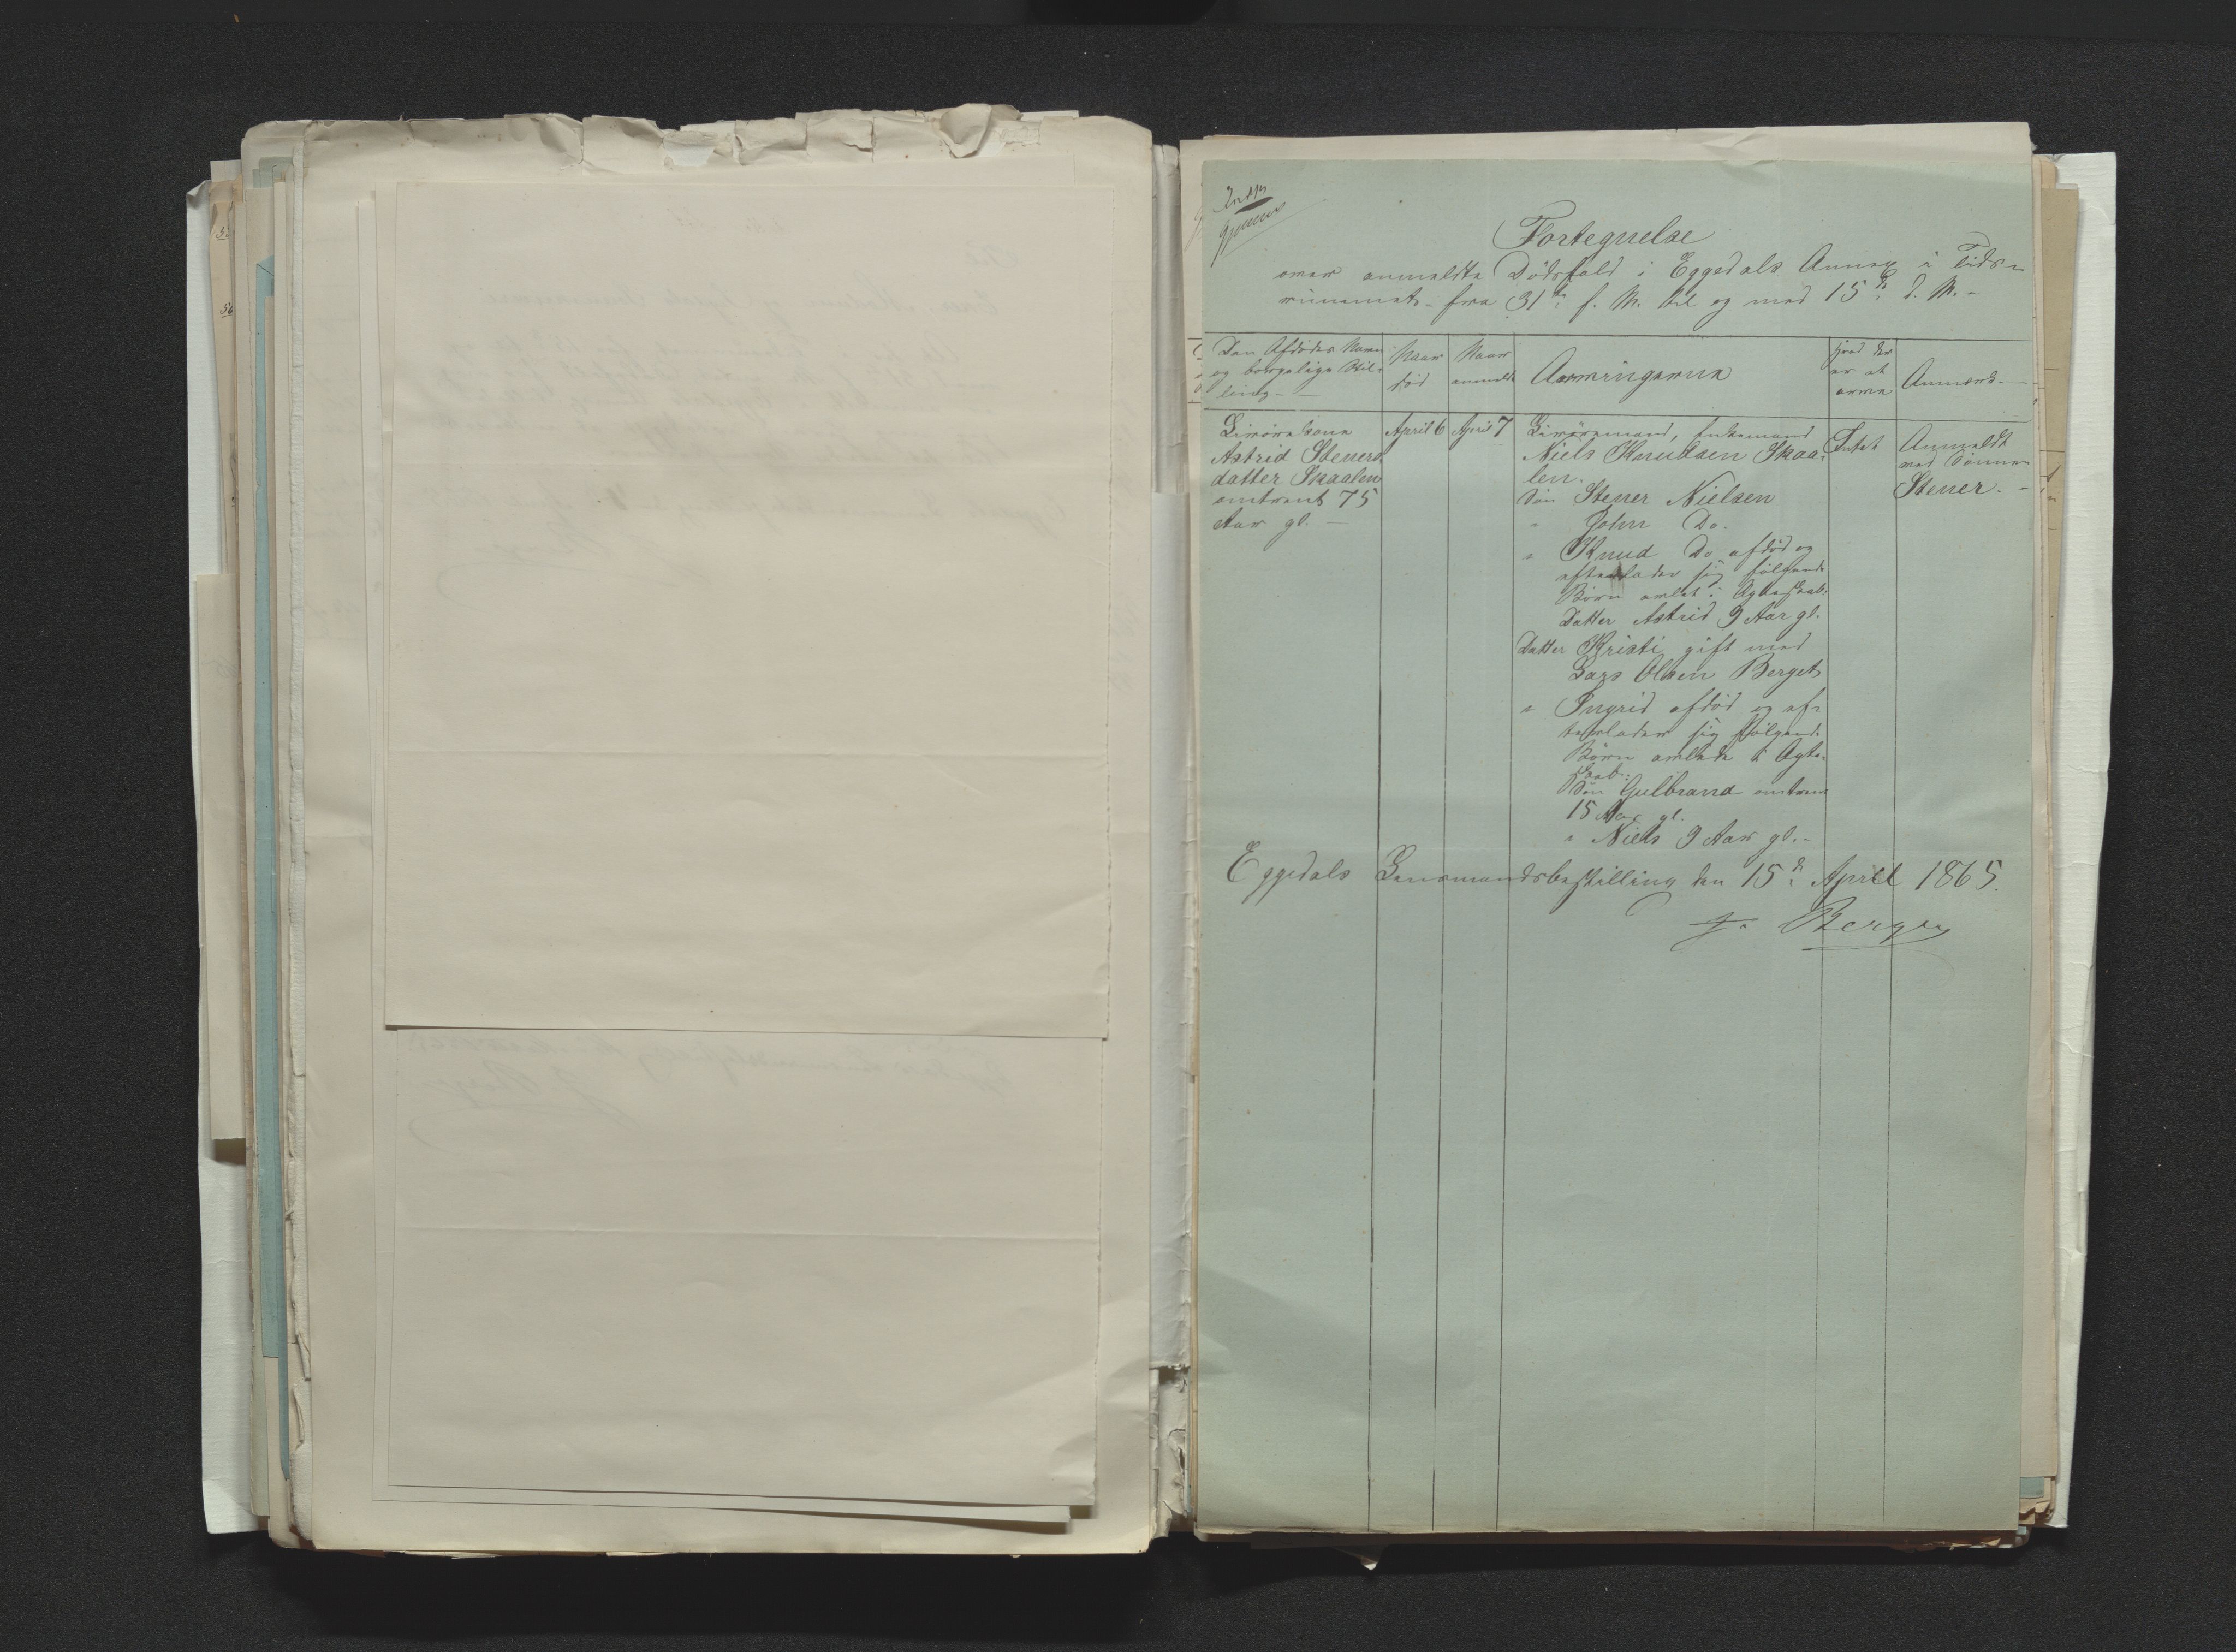 Fortegnelse
over anmeldte Dödsfald i Eggedals Annex i Tids-
rummet fra 31te f. M. til og med 15de d. M. -
Den Afdödes Navn
og borgelige Stil-
ling -
Naar
död
Naar
anmeldt
Arvingerne
Hvad der
er at
arve
Anmærk. -
Livörekone
Astrid Steners
datter Skaalen
omtrent 75
Aar gl. -
April 6
April 7
Livöremand, Enkemand
Niels Knudsen Skaa-
len.
Sön Stener Nielsen
" John Do.
" Knud Do. afdöd og
efterlader sig fölgende
Börn avlet i Ægteskab:
Datter Astrid 9 Aar gl.
Datter Kristi gift med
Lars Olsen Berget
" Ingrid afdöd og ef-
terlader sig fölgende
Börn avlede i Ægte-
skab:
Sön Gulbrand omtrent
15 Aar gl.
" Niels 9 Aar gl. -
Intet
Anmeldt
ved Sönnen
Stener. -
Eggedals Lensmandsbestilling den 15de April 1865.
J. Berger